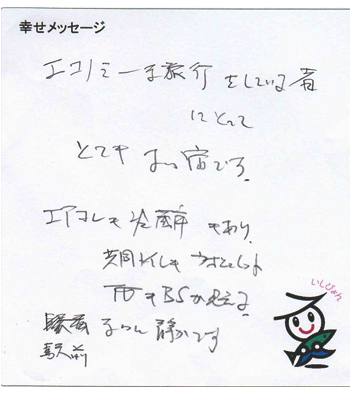 幸せメッセージ
エコノミーな旅行をしている者
にとって
とても よい宿です。
エアコンも冷蔵庫もあり、
共同トイレも ウォシュレット
TVもBSが見える。
駅前 なのに 静かです
いしぴょん